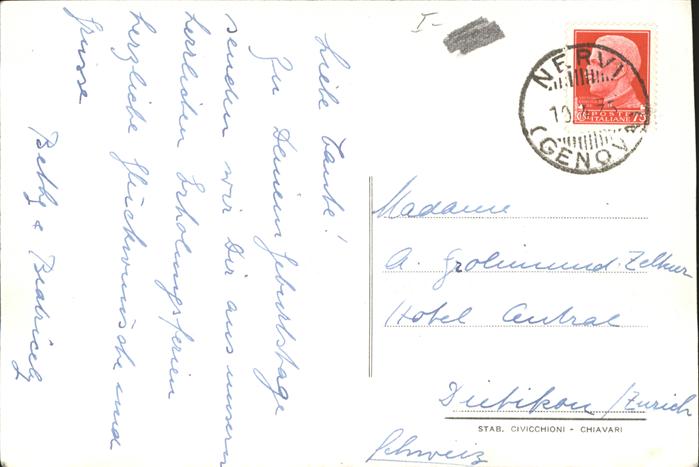 I-
Liebe Tante!
Zu Deinem Geburtstage
senden wir Dir aus unsern
herrlichen Erholungsferien
herzliche Glückwünsche und
Grüsse
Bethy & Beatricely
NERVI
(GENOVA)
POSTE
ITALIANE
75
Madame
A. Grolimund-Zeltner
Hotel Central
Dietikon/Zürich
STAB. CIVICCHIONI - CHIAVARI
Schweiz